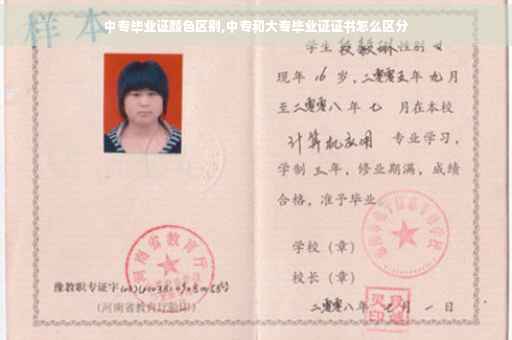 中专毕业证颜色区别,中专和大专毕业证证书怎么区分
样本
学生 性别 女
现年 16 岁,二零零五年 九月
至二零零八年 七 月在本校
计算机应用 专业学习,
学制 三年,修业期满,成绩
合格,准予毕业
学校(章)
校长(章)
二零零八年 七月 一日
河南省教育厅
豫教职专证字
(河南省教育厅验印)